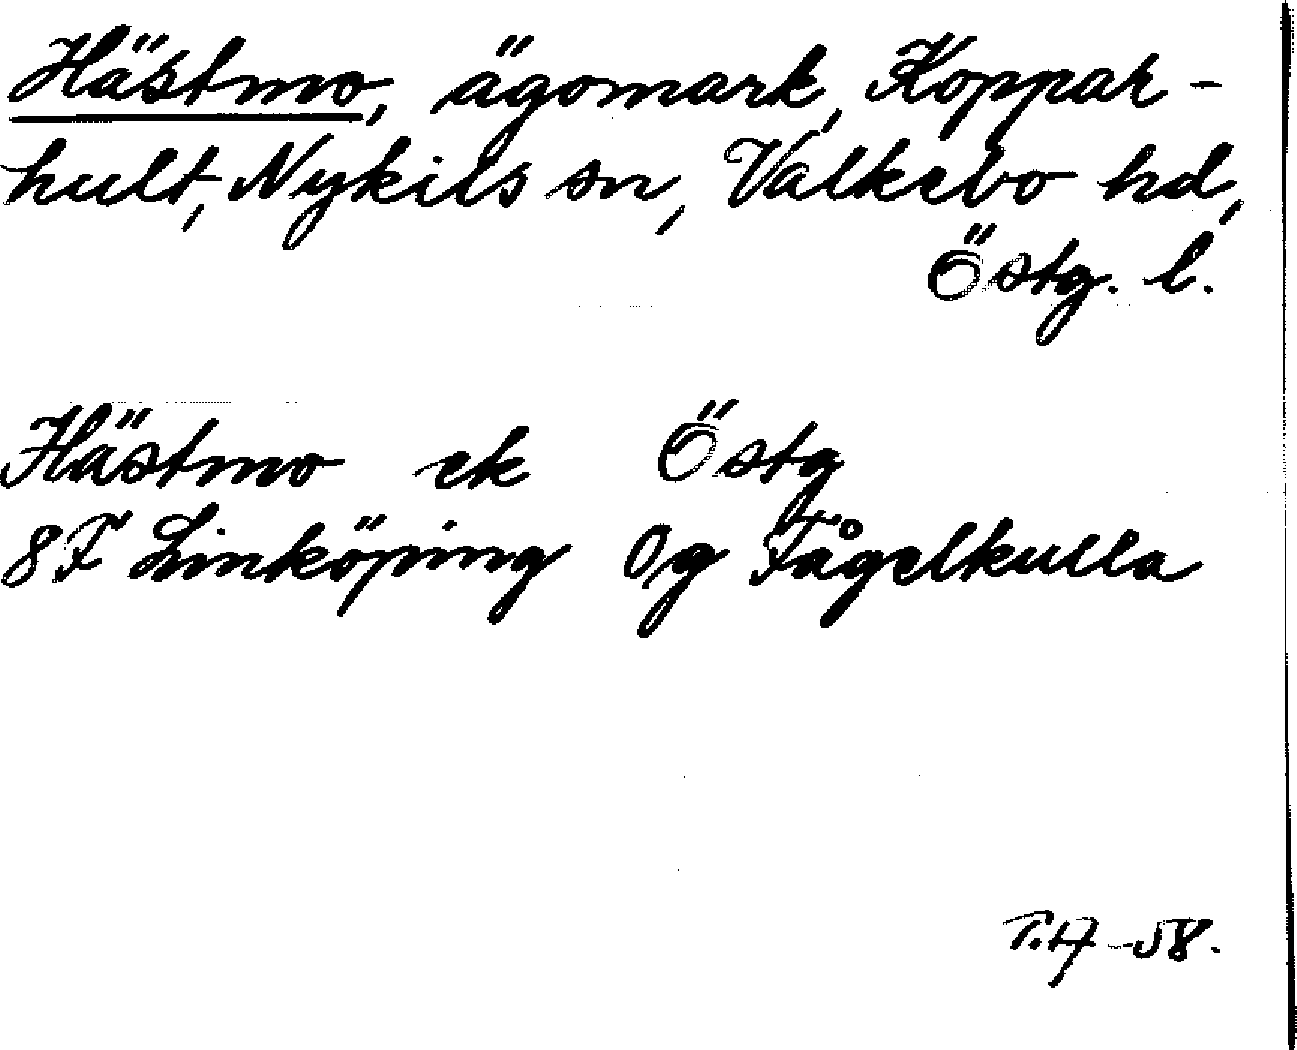 Hästmo, ägomark, Koppar-
hult, Nykils sn, Valkebo hd,
Östg. l.
Hästmo ek Östg
8F Linköping 0g Fågelkulla
-58.